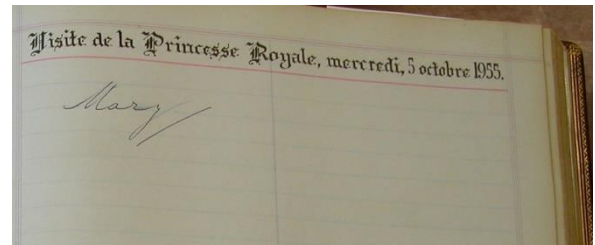 Visite de la Princesse Royale, mercredi, 5 octobre 1955.
Mary